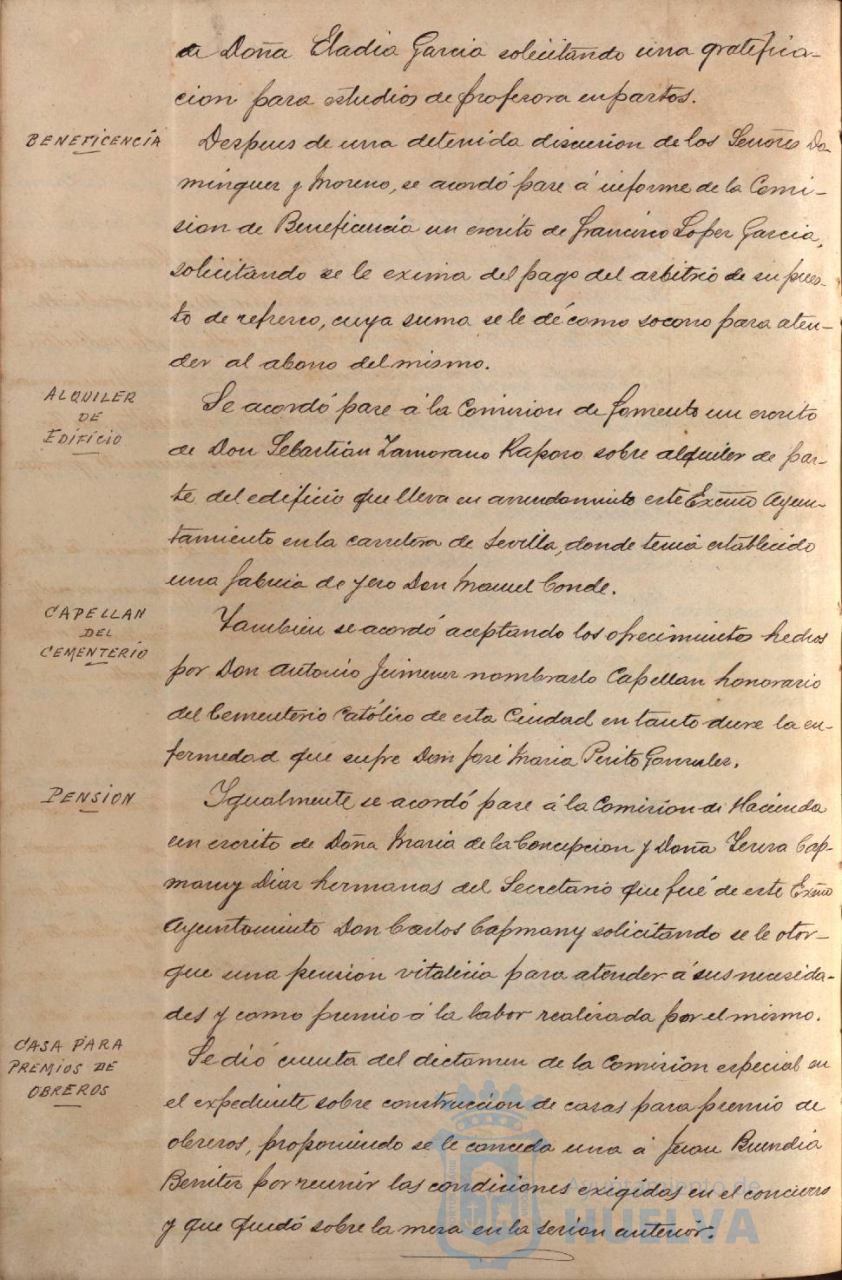 de Doña Eladia Garcia solicitando una gratifica-
cion para estudios de profesora en partos.
BENEFICENCIA
Despues de una detenida discusion de los Señores Do
minguez y Moreno, se acordó pase á informe de la Comi-
sion de Beneficencia un escrito de Francisco Lopez Garcia,
solicitando se le exima del pago del arbitrio de su pues-
to de refresco, cuya suma se le dé como socorro para aten-
der al abono del mismo.
ALQUILER
DE
EDIFICIO
Se acordó pase á la Comision de fomento un escrito
de Don Sebastián Zamorano Raposo sobre alquiler de par-
te del edificio que lleva en arrendamiento este Excmo Ayun-
tamiento en la carretera de Sevilla, donde tenia establecido
una fabrica de yeso Don Manuel Conde.
CAPELLAN
DEL
CEMENTERIO
Tambien se acordó aceptando los ofrecimientos hechos
por Don Antonio Jimenez nombrarlo Capellan honorario
del Cementerio Católico de esta Ciudad en tanto dure la en-
fermedad que sufre Don José Maria Perito Gonzalez.
PENSION
Igualmente se acordó pase á la Comisión de Hacienda
un escrito de Doña Maria de la Concepcion y Doña Teresa Cap-
many Diaz hermanas del Secretario que fué de este Excmo
Ayuntamiento Don Carlos Capmany solicitando se le otor-
gue una pensión vitalicia para atender á sus necesida-
des y como premio á la labor realizada por el mismo.
CASA PARA
PREMIOS DE
OBREROS
Se dió cuenta del dictamen de la Comisión especial en
el expediente sobre construccion de casas para premio de
obreros, proponiendo se le conceda una á Juan Buendia
Benitez por reunir las condiciones exigidas en el concurso
y que quedó sobre la mesa en la sesion anterior.
Ayuntamiento de
HUELVA